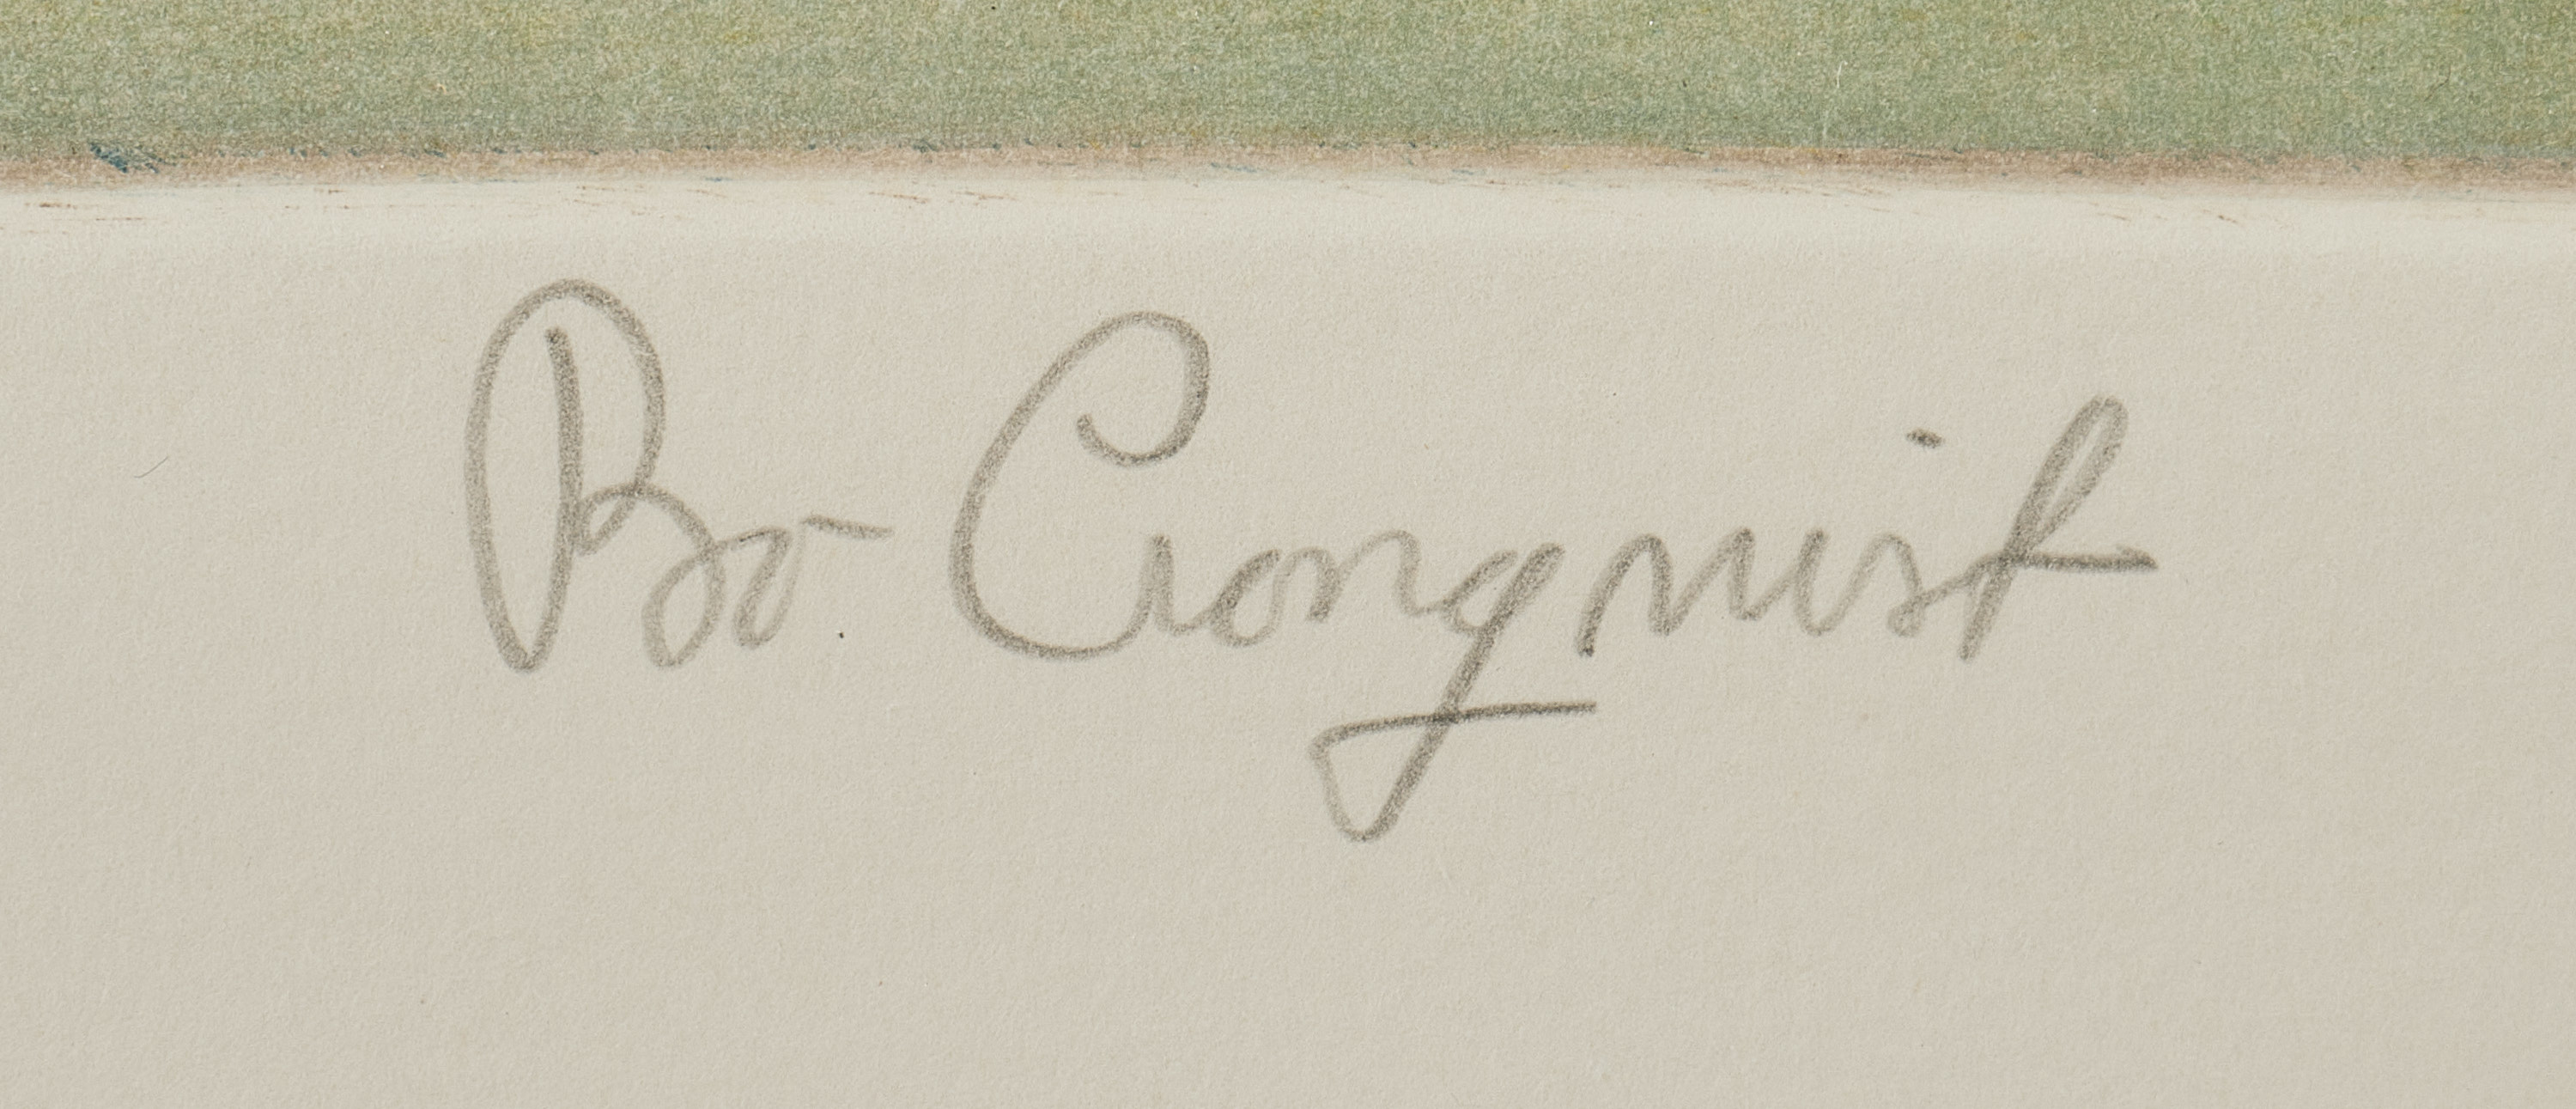 Bo Cronqvist